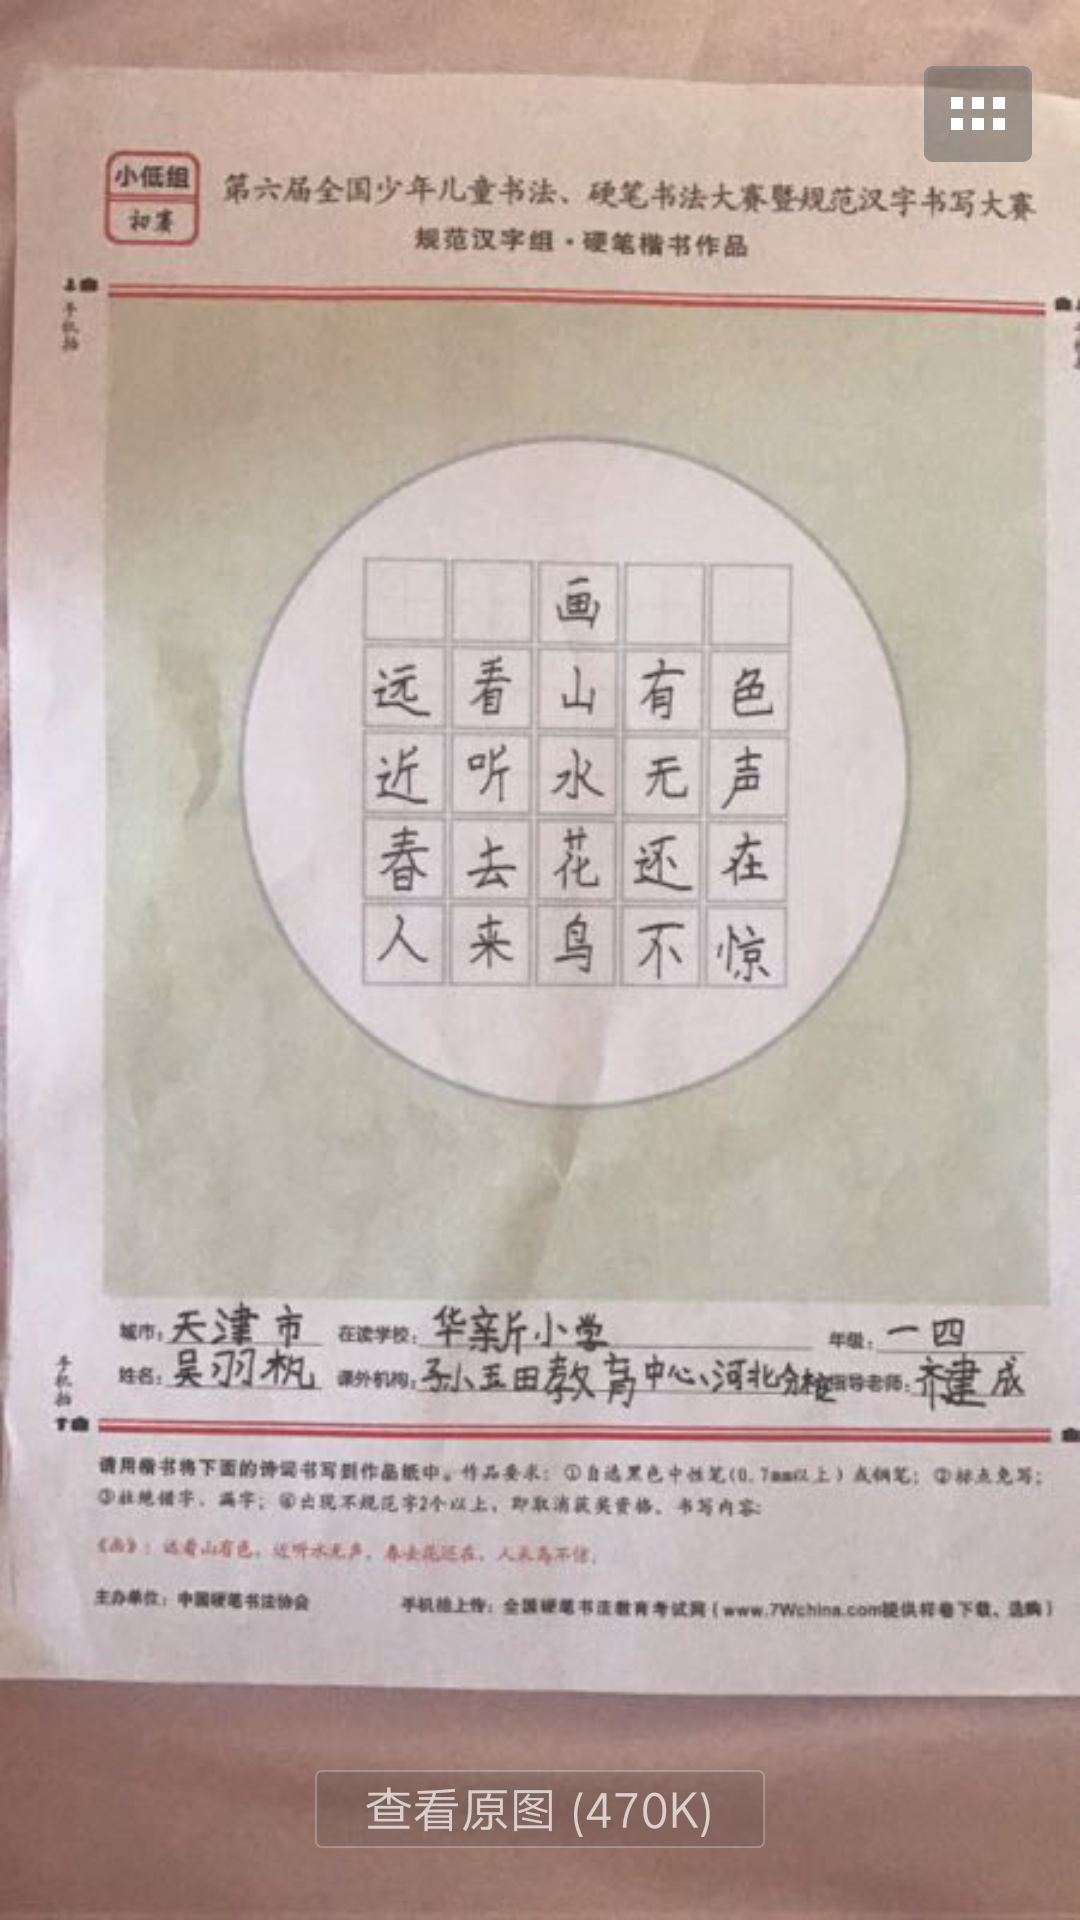 小低组
初赛
第六届全国少年儿童书法、硬笔书法大赛暨规范汉字书写大赛
规范汉字组·硬笔楷书作品
手机拍
画
远看山有色
近听水无声
春去花还在
人来鸟不惊
城市：天津市 在读学校：华新小学 年级：一四
姓名：吴羽枫 课外机构：孙玉田教育中心、河北分校 指导老师：齐建成
手机拍
请用楷书将下面的诗词书写到作品纸中。作品要求：①自选黑色中性笔(0.7mm以上)或钢笔；②标点免写；
③杜绝错字、漏字；④出现不规范字2个以上，即取消获奖资格。书写内容:
《画》：远看山有色，近听水无声。春去花还在，人来鸟不惊。
主办单位：中国硬笔书法协会 手机拍上传：全国硬笔书法教育考试网（www.7Wchina.com提供样卷下载、选购）
查看原图 (470K)